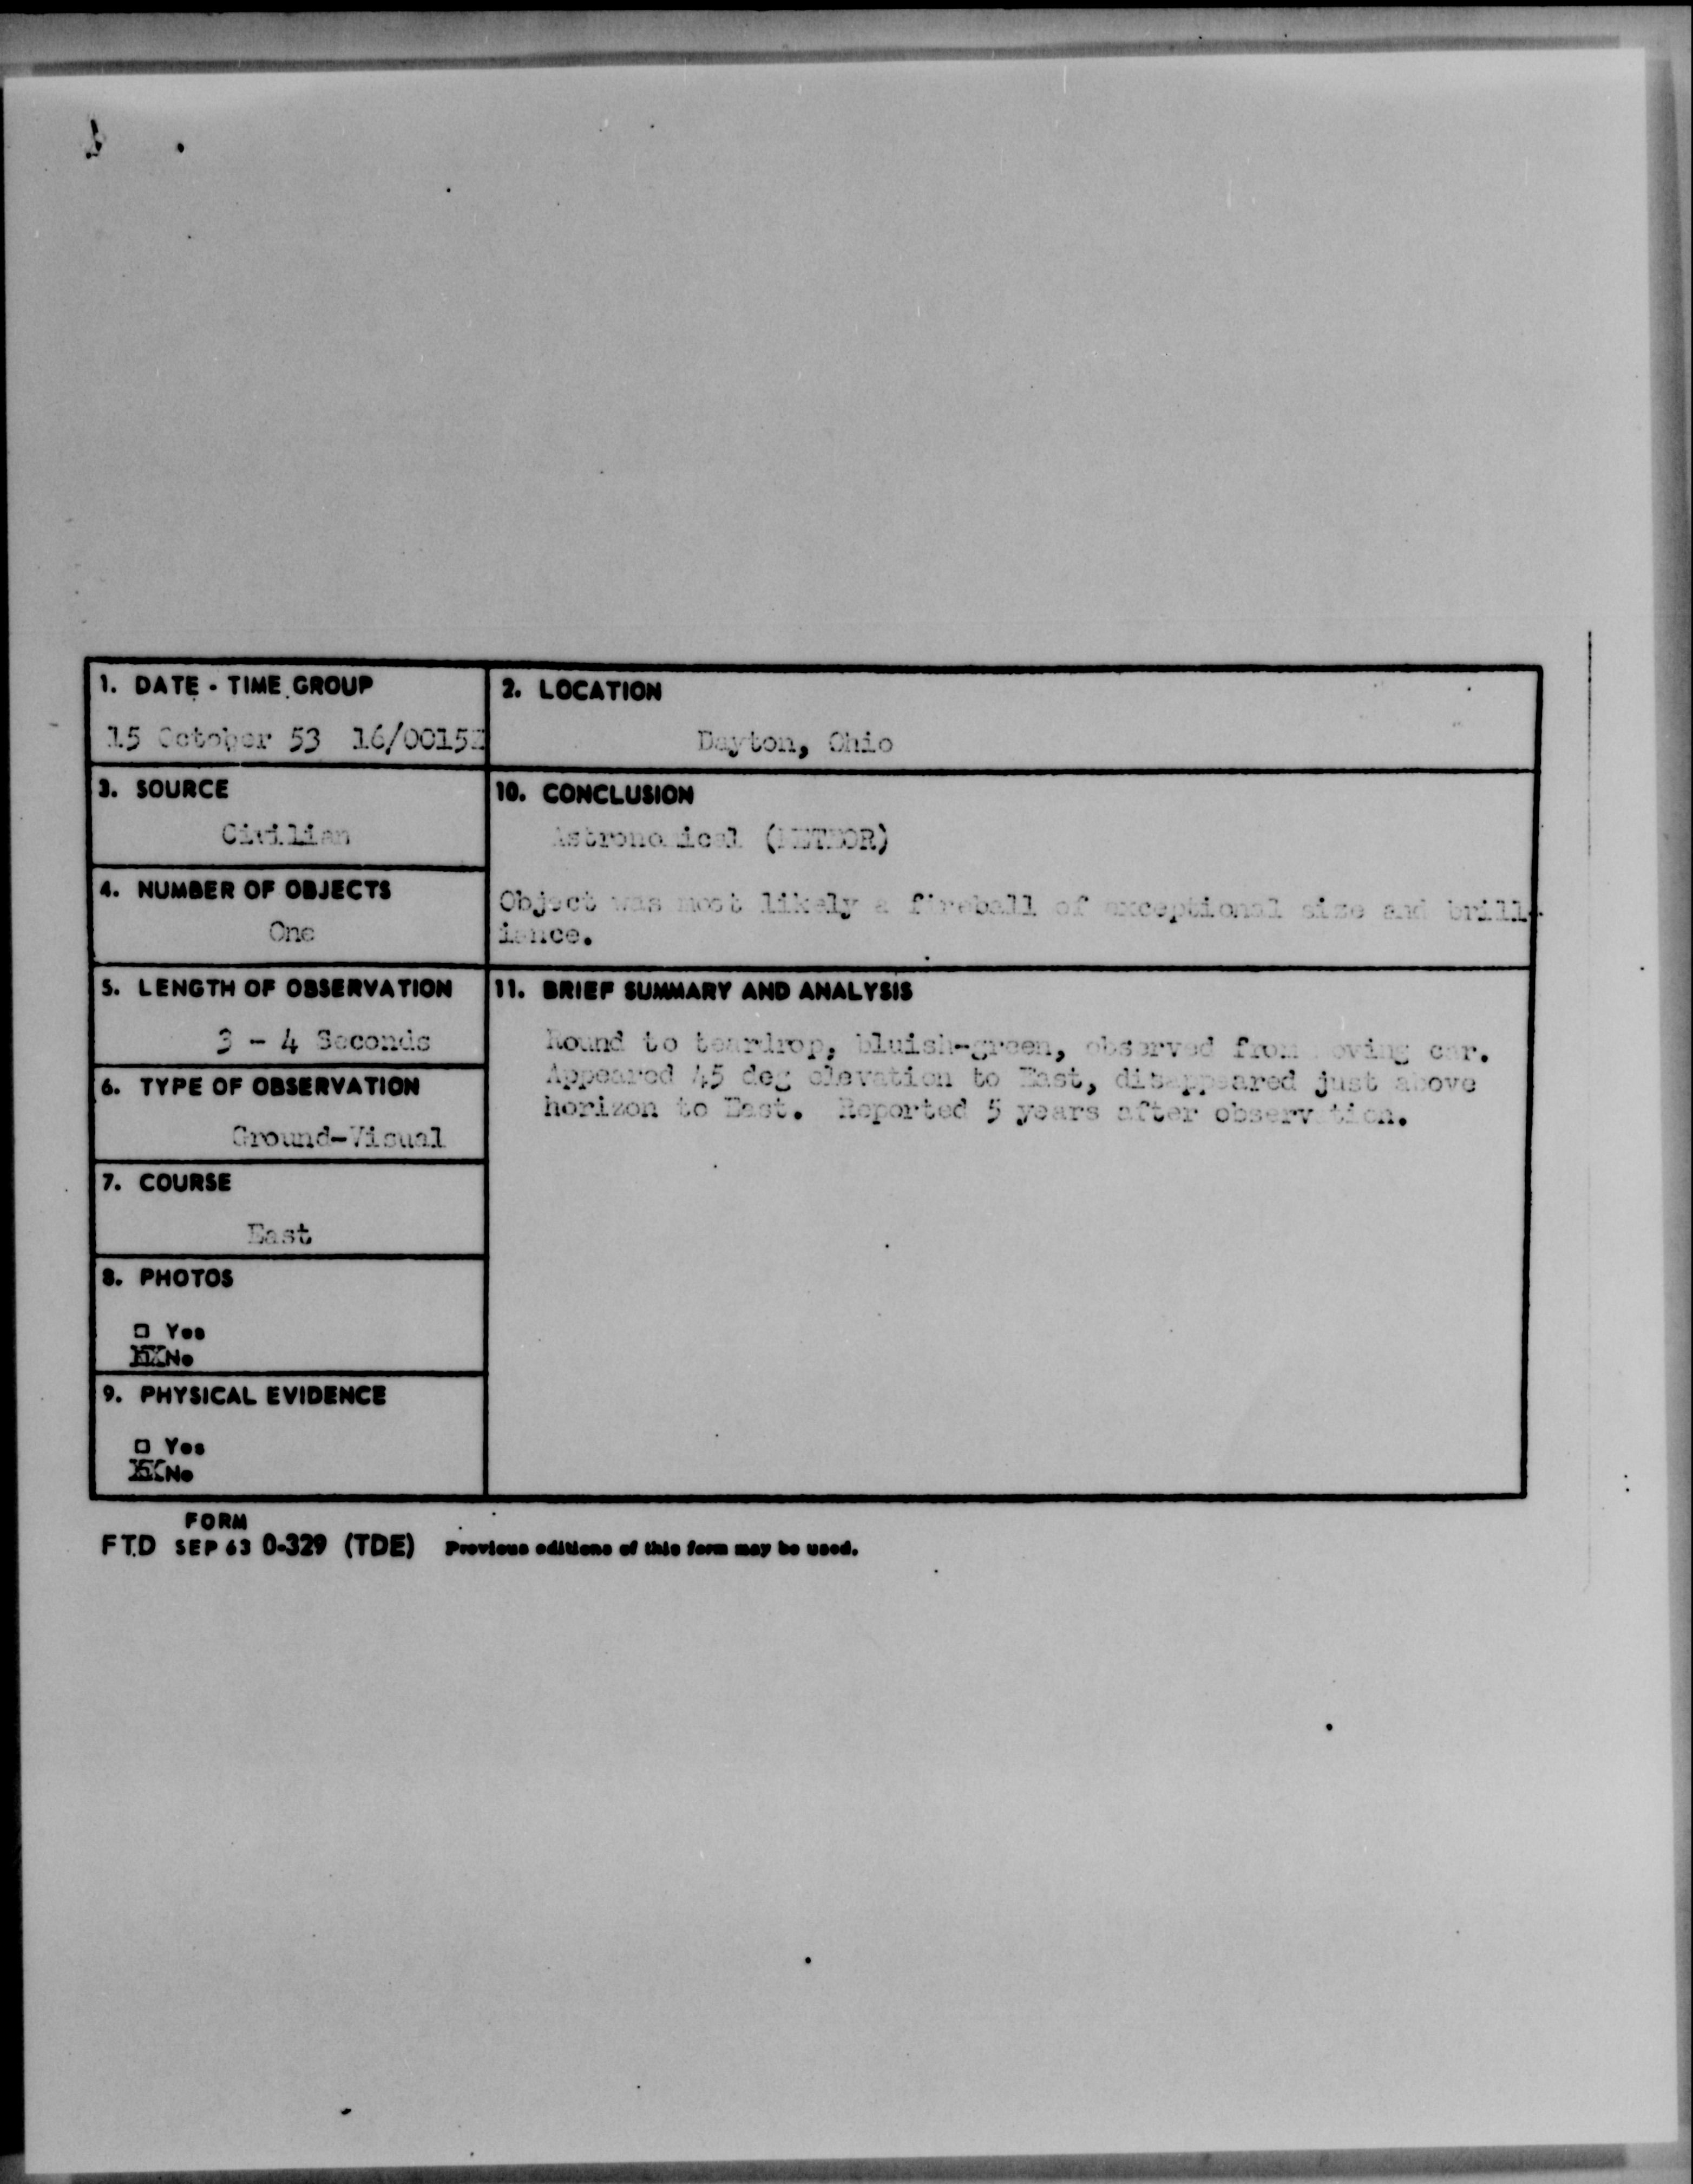 1. DATE - TIME GROUP
15 October 53 16/0015Z
2. LOCATION
Dayton, Ohio
3. SOURCE
Civilian
10. CONCLUSION
Astronomical (METEOR)
Object was most likely a fireball of exceptional size and brill-
iance.
4. NUMBER OF OBJECTS
One
5. LENGTH OF OBSERVATION
3 - 4 Seconds
11. BRIEF SUMMARY AND ANALYSIS
Round to teardrop, bluish-green, observed from moving car.
Appeared 45 deg elevation to East, disappeared just above
horizon to East. Reported 5 years after observation.
6. TYPE OF OBSERVATION
Ground-Visual
7. COURSE
East
8. PHOTOS
□ Yes
XX No
9. PHYSICAL EVIDENCE
□ Yes
XX No
FORM
FTD SEP 63 0-329 (TDE) Previous editions of this form may be used.